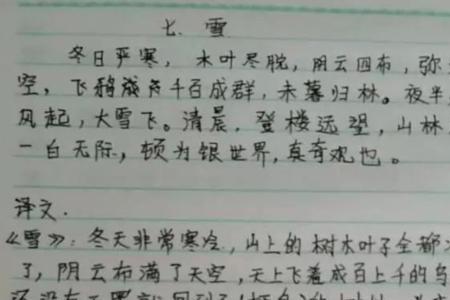 七、雪
冬日严寒，木叶尽脱，阴云四布，弥
空，飞鸦千百成群，未暮归林。夜半，
风起，大雪飞。清晨，登楼远望，山林
一白无际，顿为银世界，真奇观也。
译文.
《雪》：冬天非常寒冷，山上的树木叶子全都
了，阴云布满了天空，天上飞着成百上千的乌